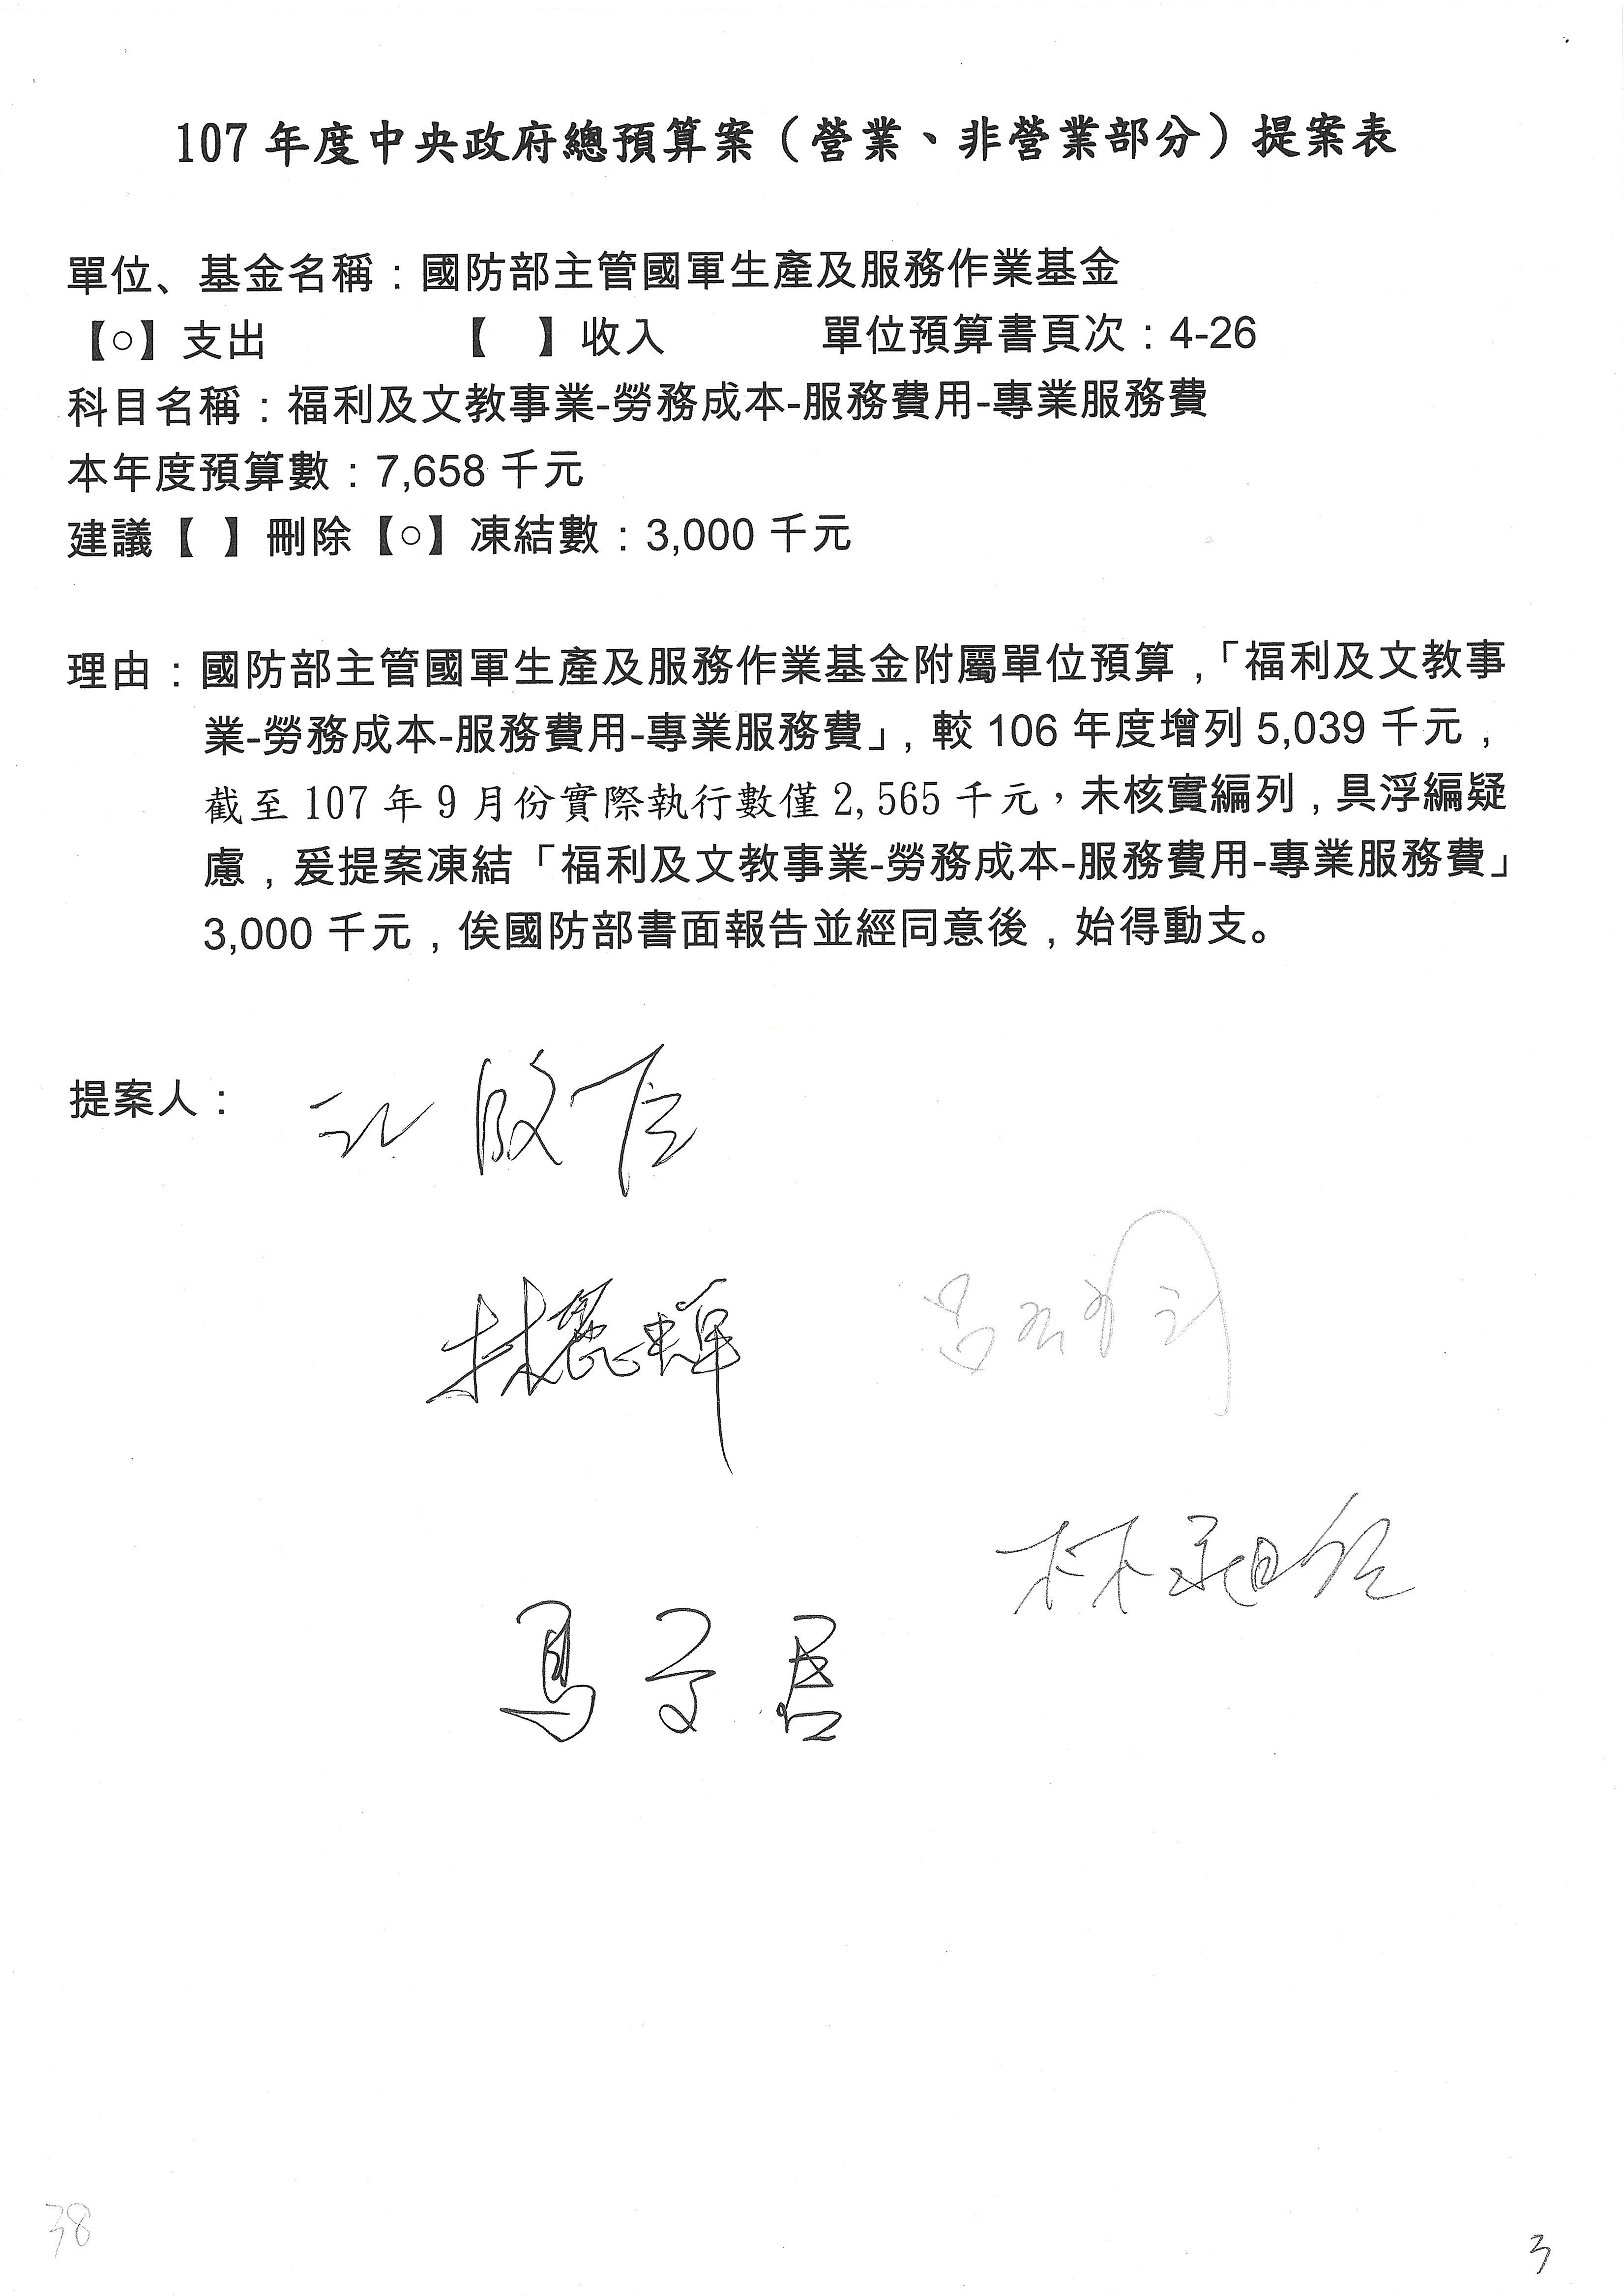 107 年度中央政府總預算案（營業、非營業部分）提案表
單位、基金名稱：國防部主管國軍生產及服務作業基金
【○】支出 【 】收入 單位預算書頁次：4-26
科目名稱：福利及文教事業-勞務成本-服務費用-專業服務費
本年度預算數：7,658 千元
建議【 】刪除【○】凍結數：3,000 千元
理由：國防部主管國軍生產及服務作業基金附屬單位預算，「福利及文教事
業-勞務成本-服務費用-專業服務費」，較 106 年度增列 5,039 千元，
截至 107 年 9 月份實際執行數僅 2,565 千元，未核實編列，具浮編疑
慮，爰提案凍結「福利及文教事業-勞務成本-服務費用-專業服務費」
3,000 千元，俟國防部書面報告並經同意後，始得動支。
提案人：
林麗蟬
馬文君
38
3